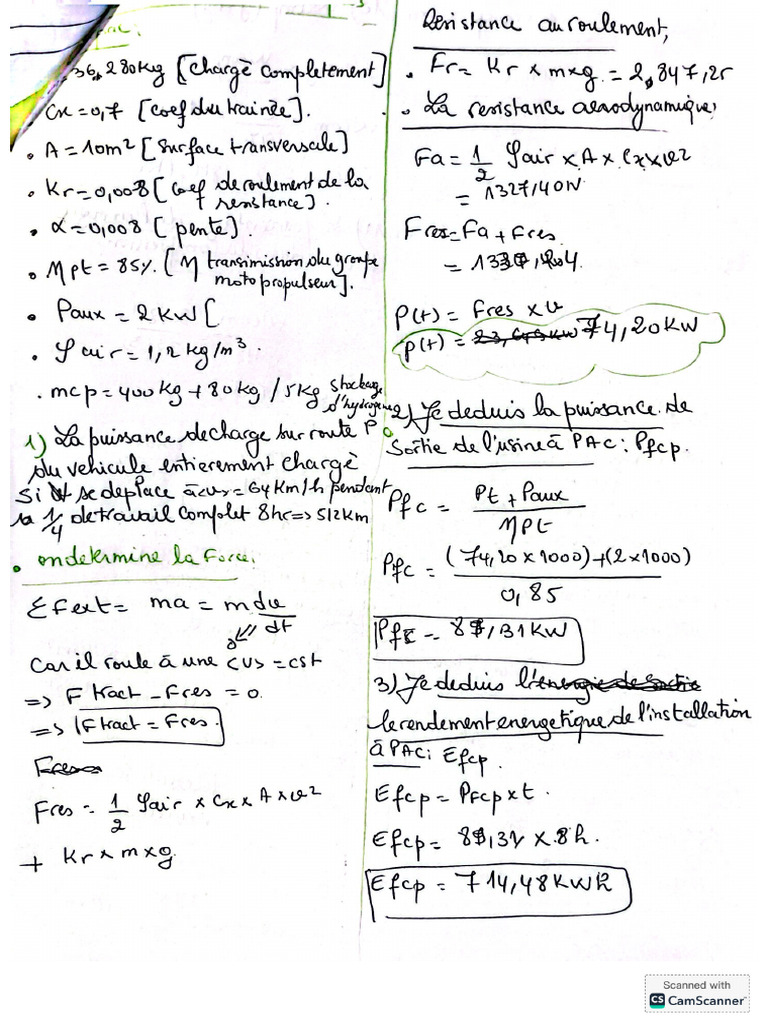 36,280Kg [Chargé completement]
Cx = 0,7 [coef du trainée].
• A = 10m² [Surface transversale]
• Kr = 0,008 [Coef de roulement de la resistance].
• α = 0,008 [pente].
• Ƞpt = 85%. [Ƞ transimission du groupe moto propulseur].
• Paux = 2 KW [
• ρair = 1,2 kg/m³.
• mcp = 400 kg + 80 kg / 5Kg Shockage d'hydrogene
1) La puissance de charge sur route P
du vehicule entierement chargé
Si se deplace à cvs = 64 Km/h pendant
1/4 de travail complet 8hr => 512 Km
• on determine la Force:
ΣFext = ma = m dv/dt
0
Car il roule à une cvs = cst
=> F tract - Fres = 0.
=> F tract = Fres.
Fres
Fres = 1/2 ρair × Cx × A × v²
+ Kr × m × g.
Resistance au roulement,
• Fr = Kr × m × g = 2,847,2r
• La resistance aerodynamique,
Fa = 1/2 ρair × A × Cx × v²
= 1327,40N
Fres = Fa + Fres
P(t) = Fres × v
P(t) = 74,20 KW
2) Je deduis la puissance de
Sortie de l'usine à PAC: Pfcp.
Pfc = Pt + Paux / ȠPt
Pfc = (74,20 × 1000) + (2 × 1000) / 0,85
3) Je deduis l'energie de Sortie
le rendement energetique de l'installation
à PAC: Efcp.
Efcp = Pfcp × t.
Efcp = 714,48 KWh
Scanned with
CS CamScanner